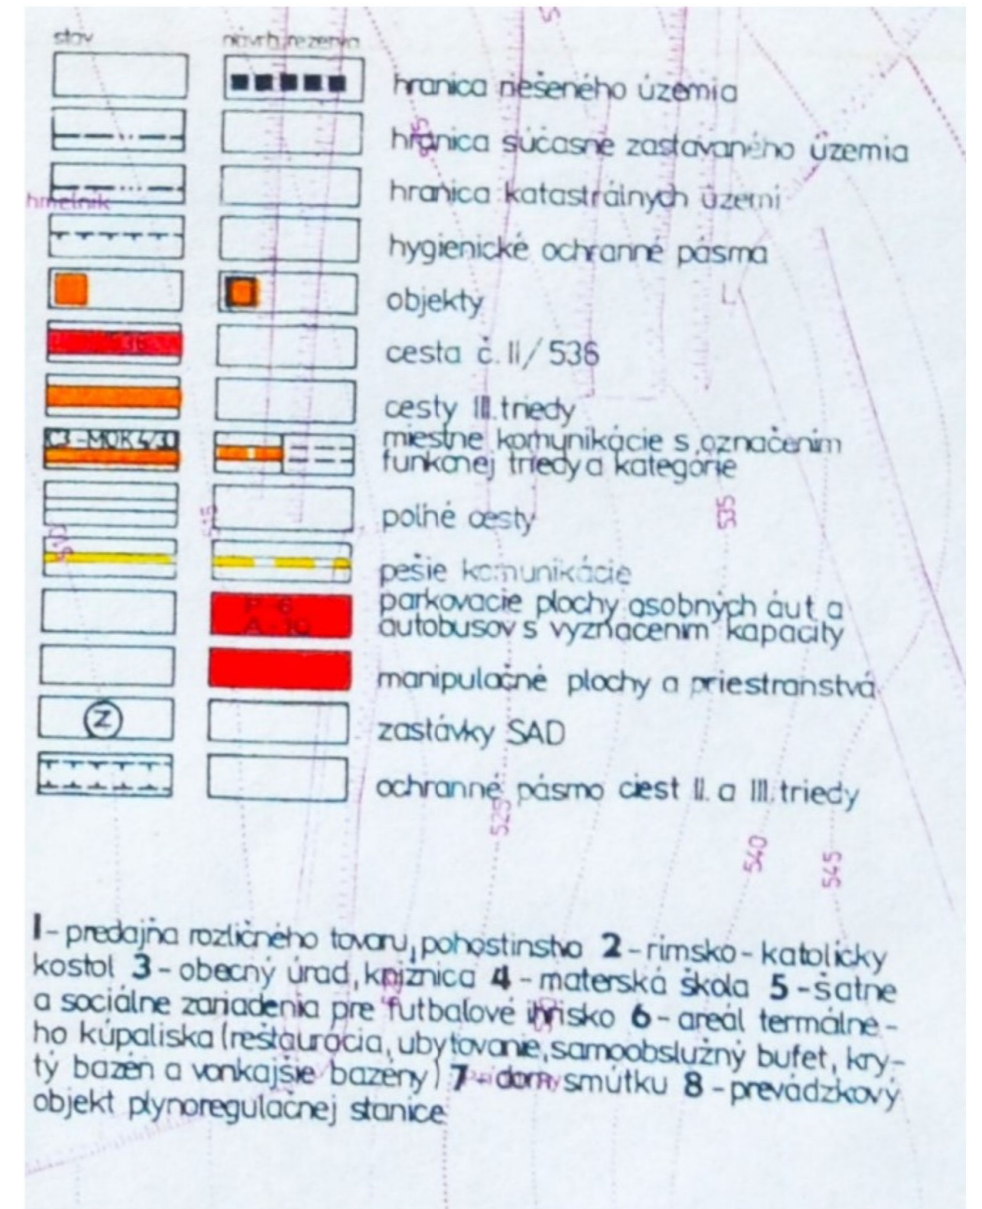 stav návrh, rezerva
hranica riešeného územia
hranica súčasne zastavaného územia
hranica katastrálnych území
hmelník
hygienické ochranné pásma
objekty
cesta č. II/536
cesty III. triedy
C3-MOK 4/30 miestne komunikácie s označením
funkčnej triedy a kategórie
poľné cesty
515
535
510
pešie komunikácie
P-6 parkovacie plochy osobných áut a
A-10 autobusov s vyznačením kapacity
manipulačné plochy a priestranstvá
Z zastávky SAD
ochranné pásmo ciest II. a III. triedy
525
540
545
1-predajňa rozličného tovaru, pohostinstvo 2-rímsko-katolícky
kostol 3-obecný úrad, knižnica 4-materská škola 5-šatne
a sociálne zariadenia pre futbalové ihrisko 6-areál termálne-
ho kúpaliska (reštaurácia, ubytovanie, samoobslužný bufet, kry-
tý bazén a vonkajšie bazény) 7-dom smútku 8-prevádzkový
objekt plynoregulačnej stanice